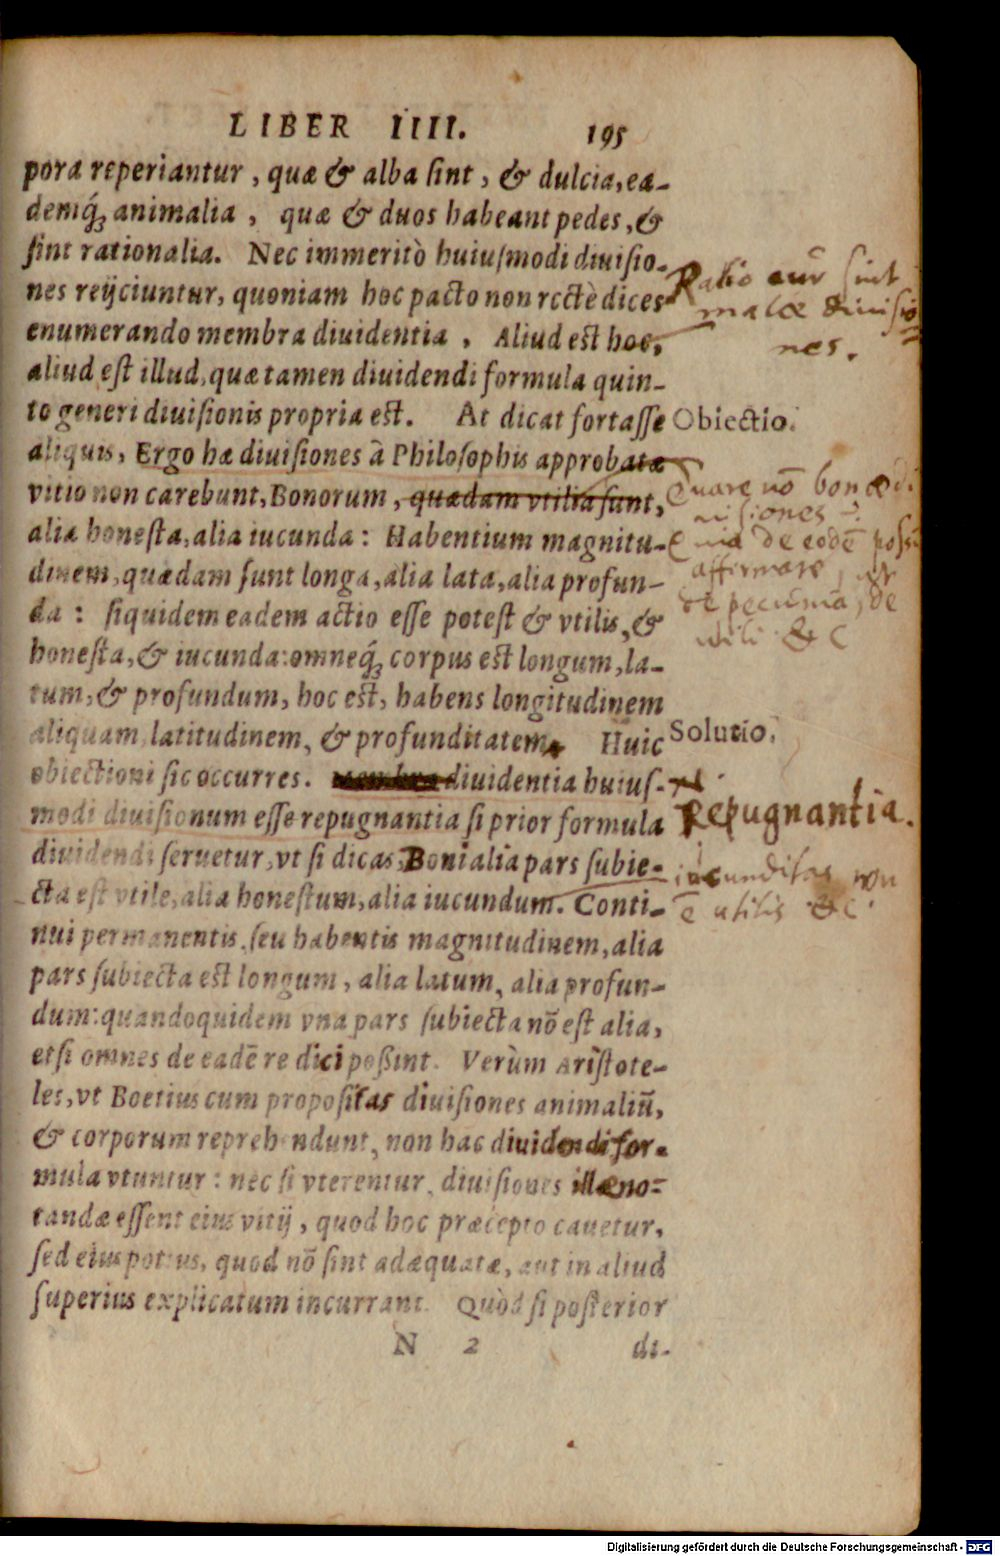 LIBER IIII. 195
pora reperiantur, quæ & alba sint, & dulcia, ea-
demq́; animalia, quæ & duos habeant pedes, &
sint rationalia. Nec immeritò huiusmodi diuisio-
nes reijciuntur, quoniam hoc pacto non rectè dices
enumerando membra diuidentia. Aliud est hoc,
aliud est illud, quæ tamen diuidendi formula quin-
to generi diuisionis propria est. At dicat fortasse
Obiectio.
aliquis, Ergo hæ diuisiones à Philosophis approbatæ
vitio non carebunt, Bonorum, quædam vtilia sunt,
alia honesta, alia iucunda: Habentium magnitu-
dinem, quædam sunt longa, alia lata, alia profun-
da: siquidem eadem actio esse potest & vtilis, &
honesta, & iucunda: omneq́; corpus est longum, la-
tum, & profundum, hoc est, habens longitudinem
aliquam, latitudinem, & profunditatem. Huic
Solutio.
obiectioni sic occurres. Membra diuidentia huius-
modi diuisionum esse repugnantia si prior formula
diuidendi seruetur, vt si dicas, Boni alia pars subie-
cta est vtile, alia honestum, alia iucundum. Conti-
nui permanentis, seu habentis magnitudinem, alia
pars subiecta est longum, alia latum, alia profun-
dum: quandoquidem vna pars subiecta nō est alia,
etsi omnes de eadē re dici possint. Verùm Aristote-
les, vt Boetius cum propositas diuisiones animaliū,
& corporum reprehendunt, non hac diuidendi for-
mula vtuntur: nec si vterentur, diuisiones illæ no-
tandæ essent eius vitij, quod hoc præcepto cauetur,
sed eius potius, quod nō sint adæquatæ, aut in aliud
superius explicatum incurrant. Quòd si posterior
N 2 di-
Ratio cur sint
malæ diuisio
nes.
Quare nō bonæ di
uisiones
de eodē possu
affirmare, ut
de pecunia, de
utili &c
Repugnantia.
iucunditas non
ē utilis &c.
Digitalisierung gefördert durch die Deutsche Forschungsgemeinschaft - DFG